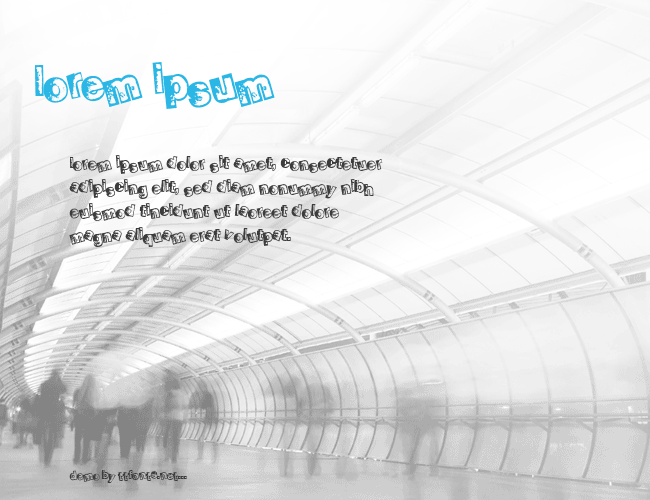 lorem ipsum
lorem ipsum dolor sit amet, consectetuer
adipiscing elit, sed diam nonummy nibh
euismod tincidunt ut laoreet dolore
magna aliquam erat volutpat.
demo by ttfonts.net...